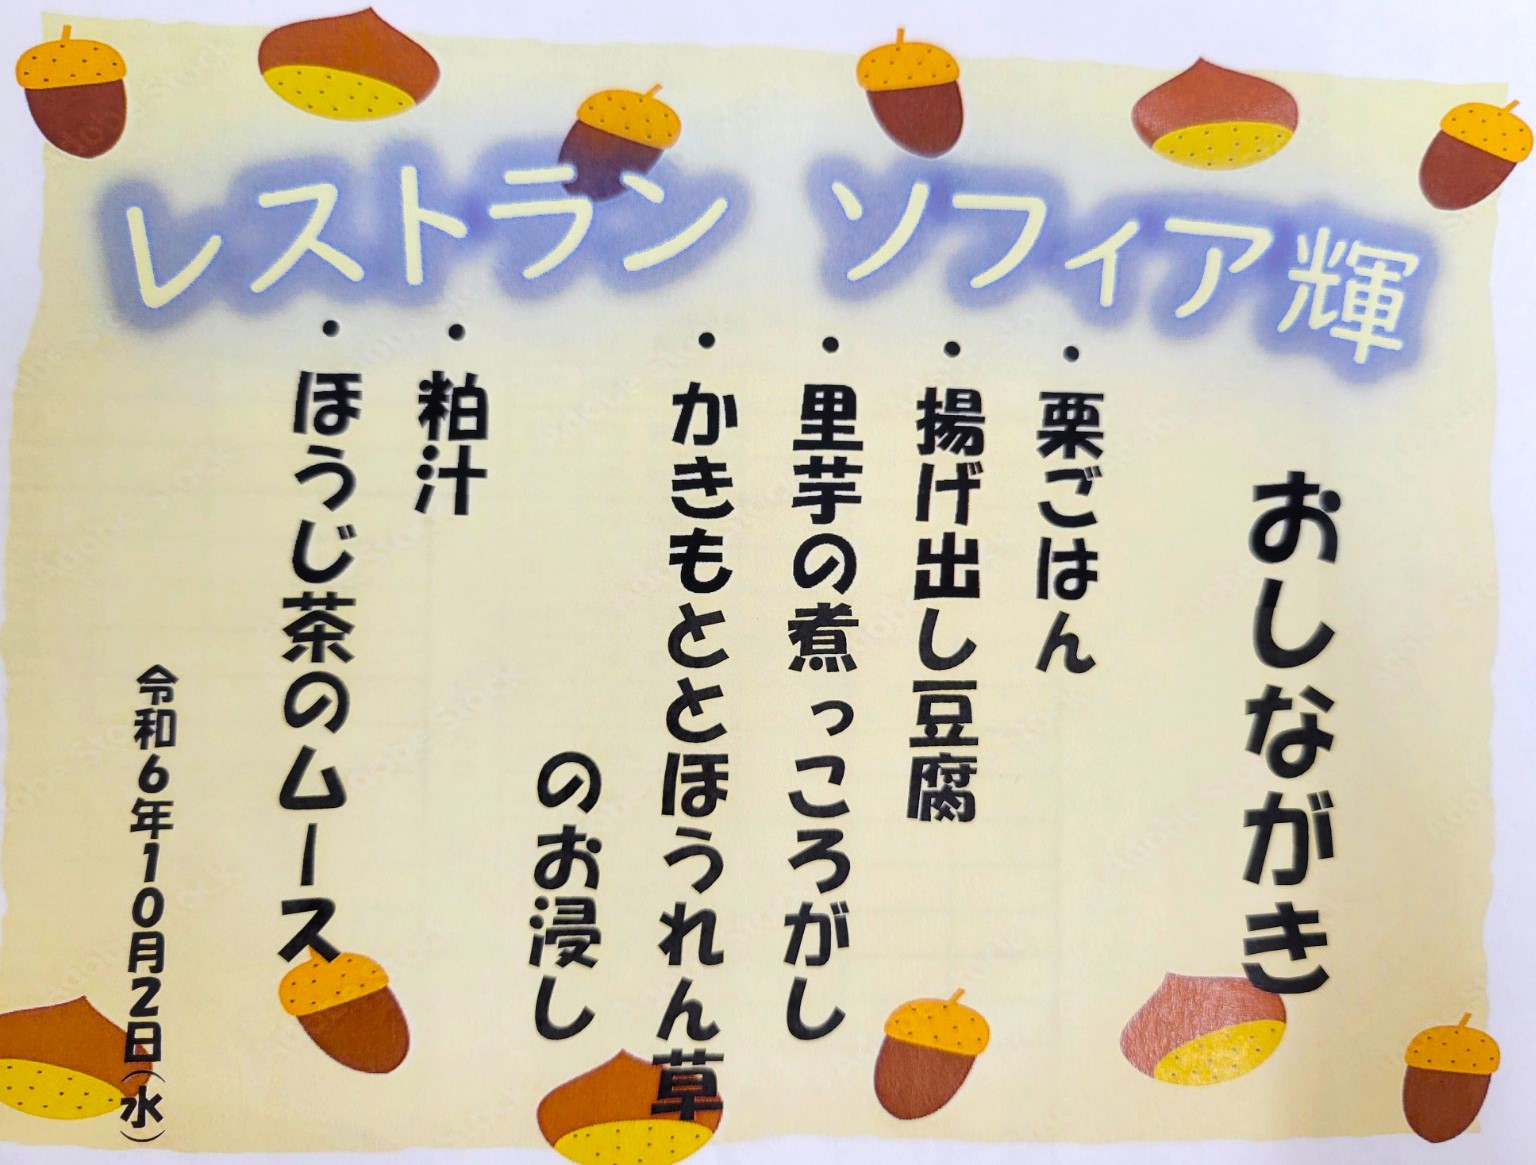 レストラン ソフィア輝
おしながき
・栗ごはん
・揚げ出し豆腐
・里芋の煮っころがし
・かきもととほうれん草
のお浸し
・粕汁
・ほうじ茶のムース
令和6年10月2日(水)